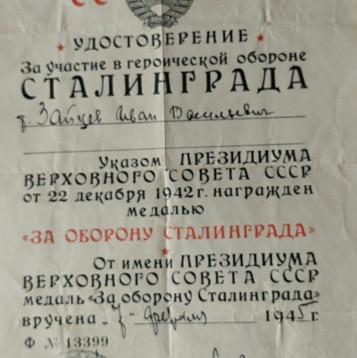 УДОСТОВЕРЕНИЕ
За участие в героической обороне
СТАЛИНГРАДА
т. Зайцев Иван Васильевич
Указом ПРЕЗИДИУМА
ВЕРХОВНОГО СОВЕТА СССР
от 22 декабря 1942 г. награжден
медалью
«ЗА ОБОРОНУ СТАЛИНГРАДА»
От имени ПРЕЗИДИУМА
ВЕРХОВНОГО СОВЕТА СССР
медаль «За оборону Сталинграда»
вручена „3“ февраля 1945 г.
Ф № 13399